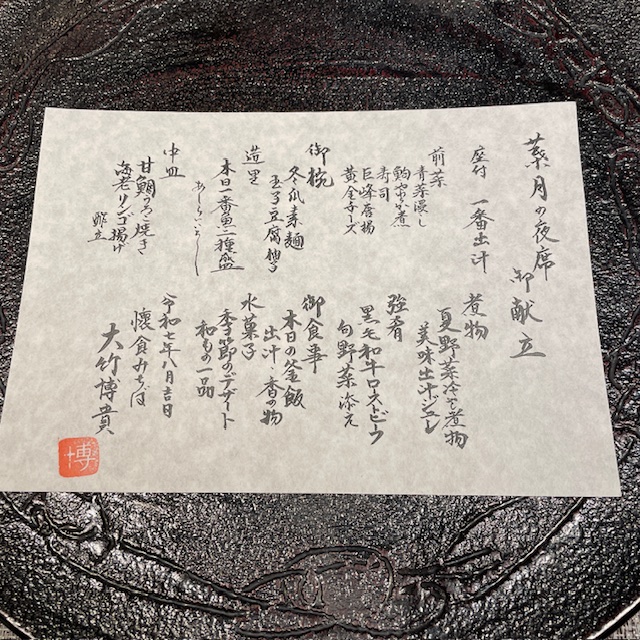 葉月の夜席
御献立
座付 一番出汁
前菜
青菜浸し
寿司
巨峰唐揚
黄金チーズ
御椀
冬瓜素麺
玉子豆腐 柚子
造里
本日一番魚二種盛
あしらいいろいろ
中皿
甘鯛うろこ焼き
海老リンゴ揚げ
酢立
煮物
夏野菜冷や煮物
美味出汁ジュレ
強肴
黒毛和牛ローストビーフ
旬野菜添え
御食事
本日の釜飯
出汁・香の物
水菓子
季節のデザート
和もの一品
令和七年八月吉日
懐食みちば
大竹博貴
博